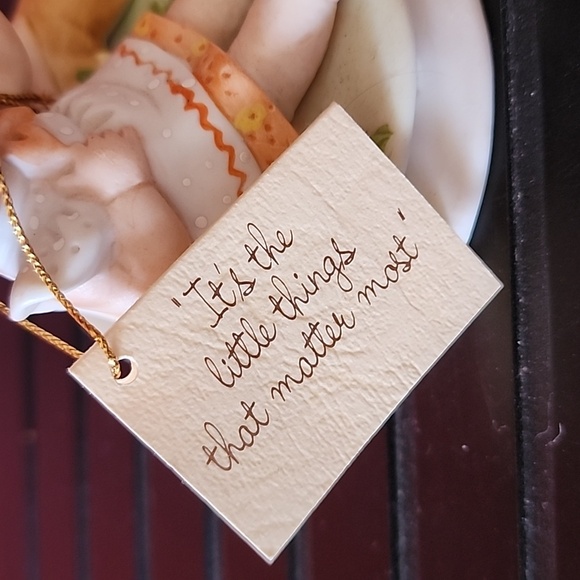 "It's the
little things
that matter most"